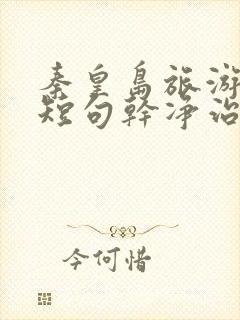 秦皇岛旅游
短句幹净治
今何惜